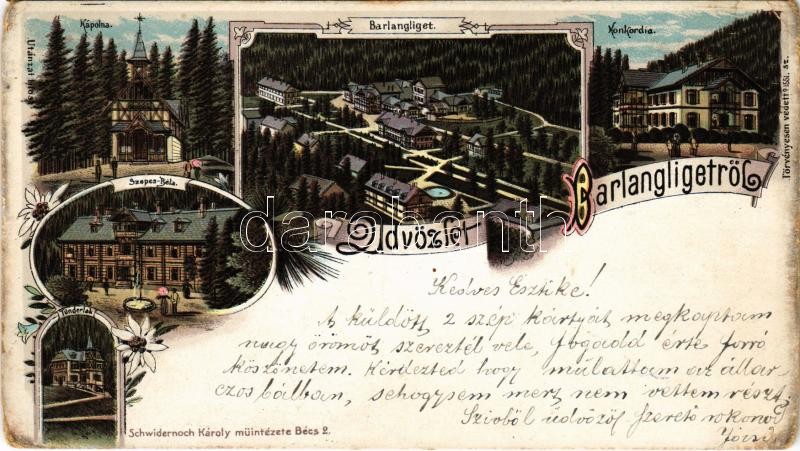 Kápolna.
Barlangliget.
Konkordia.
Utánzat tilos.
Törvényesen védett 9551. sz.
Szepes-Béla.
Üdvözlet Barlangligetről
darabanth
Tünderlak
Kedves Esztike!
A küldött 2 szép kártyát megkaptam
nagy örömöt szereztél vele, fogadd érte forró
köszönetem. Kérdezted hogy mulattam az állar-
czos bálban, sehogysem mert nem vettem részt.
Szivből üdvözöl szerető rokonod
Józsi
Schwidernoch Károly müintézete Bécs 2.